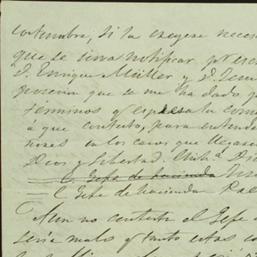 costumbre, si la creyere neces
que se sirva notificar por escr
D. Enrique Müller y D.
posesion que se me ha dado p
términos y espresa la com
a que contesto, para entende
nores en los casos que llegase
Dios y Libertad. Chih.ª
C. Gefe de hacienda
C. Gefe de hacienda
Aun no contesta el Gefe
seria malo y tanto estas co